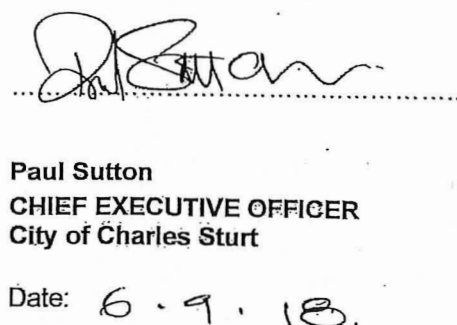 Paul Sutton
Paul Sutton
CHIEF EXECUTIVE OFFICER
City of Charles Sturt
Date: 6.9.18.